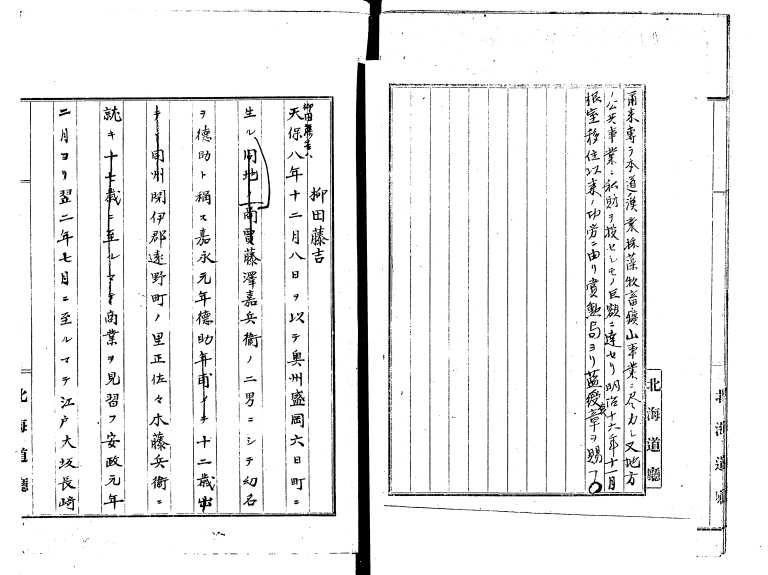 爾来専ラ本道漁業採藻牧畜鑛山事業ニ尽力シ又地方
ノ公共事業ニ私財ヲ投セシモノ巨額ニ達セリ明治十六年十二月
根室移住以来ノ功労ニ由リ賞勲局ヨリ藍綬章ヲ賜フ
北海道廳
北海道廳
柳田藤吉
柳田藤吉ハ
天保八年十二月八日ヲ以テ奥州盛岡六日町ニ
生ル同地ノ商賈藤澤嘉兵衞ノ二男ニシテ幼名
ヲ徳助ト稱ス嘉永元年徳助年甫メテ十二歳出
テヽ同州閉伊郡遠野町ノ里正佐々木藤兵衞ニ
就キ十七歳ニ至ルマテ商業ヲ見習フ安政元年
二月ヨリ翌二年七月ニ至ルマテ江戸大坂長崎
北海道廳